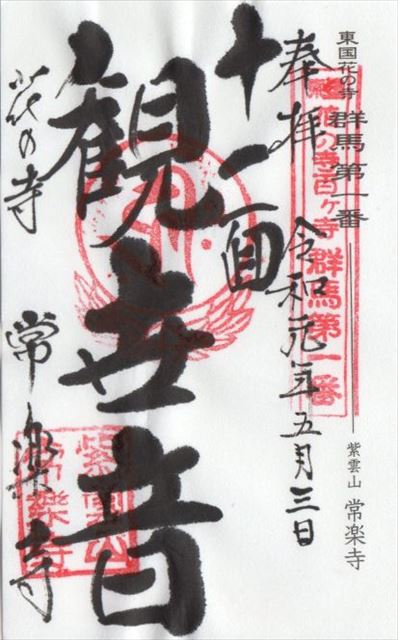 東国花の寺
群馬第一番
紫雲山 常楽寺
花の寺百ヶ寺 群馬第一番
奉拝
令和元年五月三日
十一面
観世音
花の寺
常楽寺
紫雲山
常樂寺